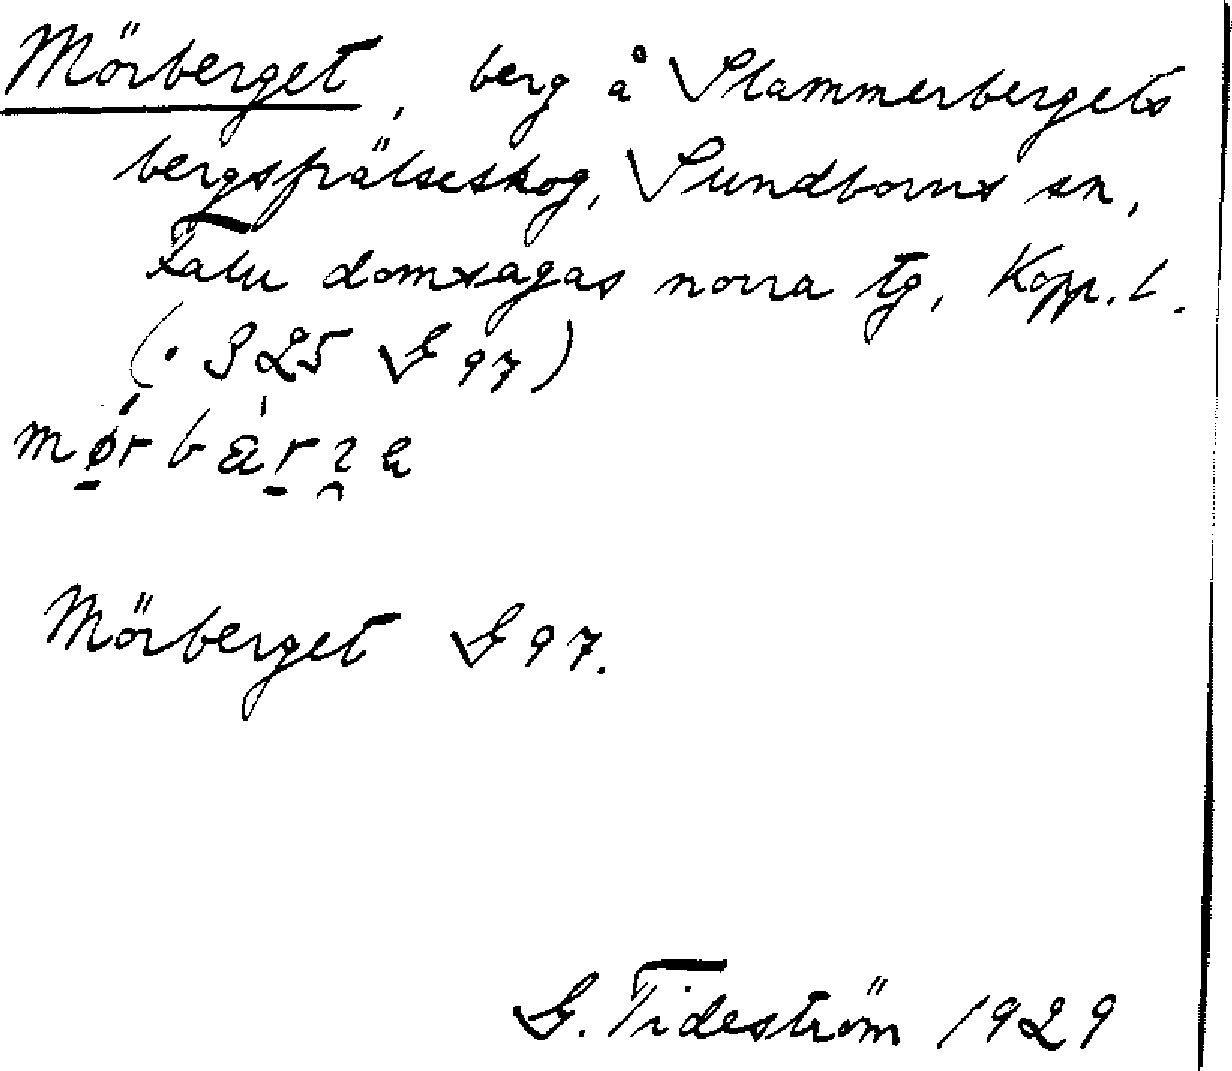 Mörberget, berg å Slammerbergets
bergsfrälseskog, Sundborns sn,
Falu domsagas norra tg, Kopp. l.
(· 325 G 97)
Mörberget G 97.
G. Tideström 1929